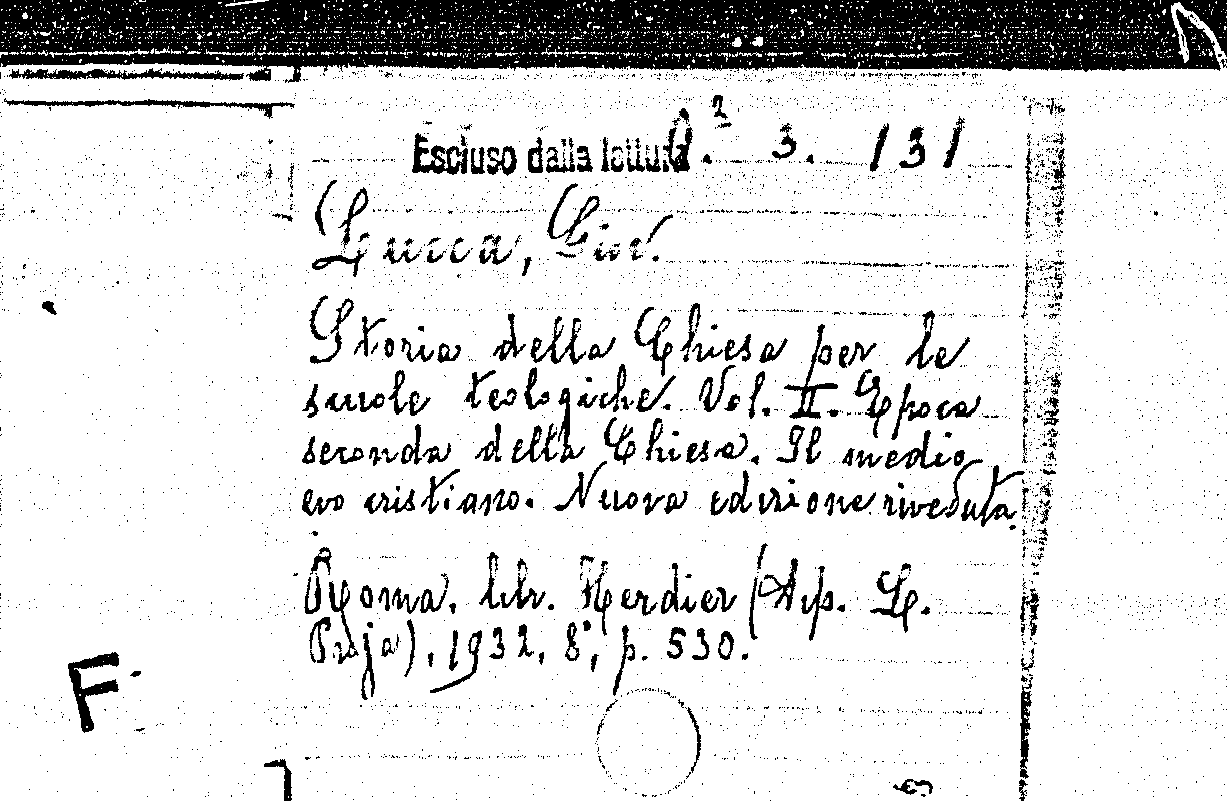 Escluso dalla lettura . 2 3. 131
Lucca, Giov.
Storia della Chiesa per le
scuole teologiche. Vol. II. Epoca
seconda della Chiesa. Il medio
evo cristiano. Nuova edizione riveduta.
Roma. libr. Herdier (Tip. L.
), 1932, 8°, p. 530.
F